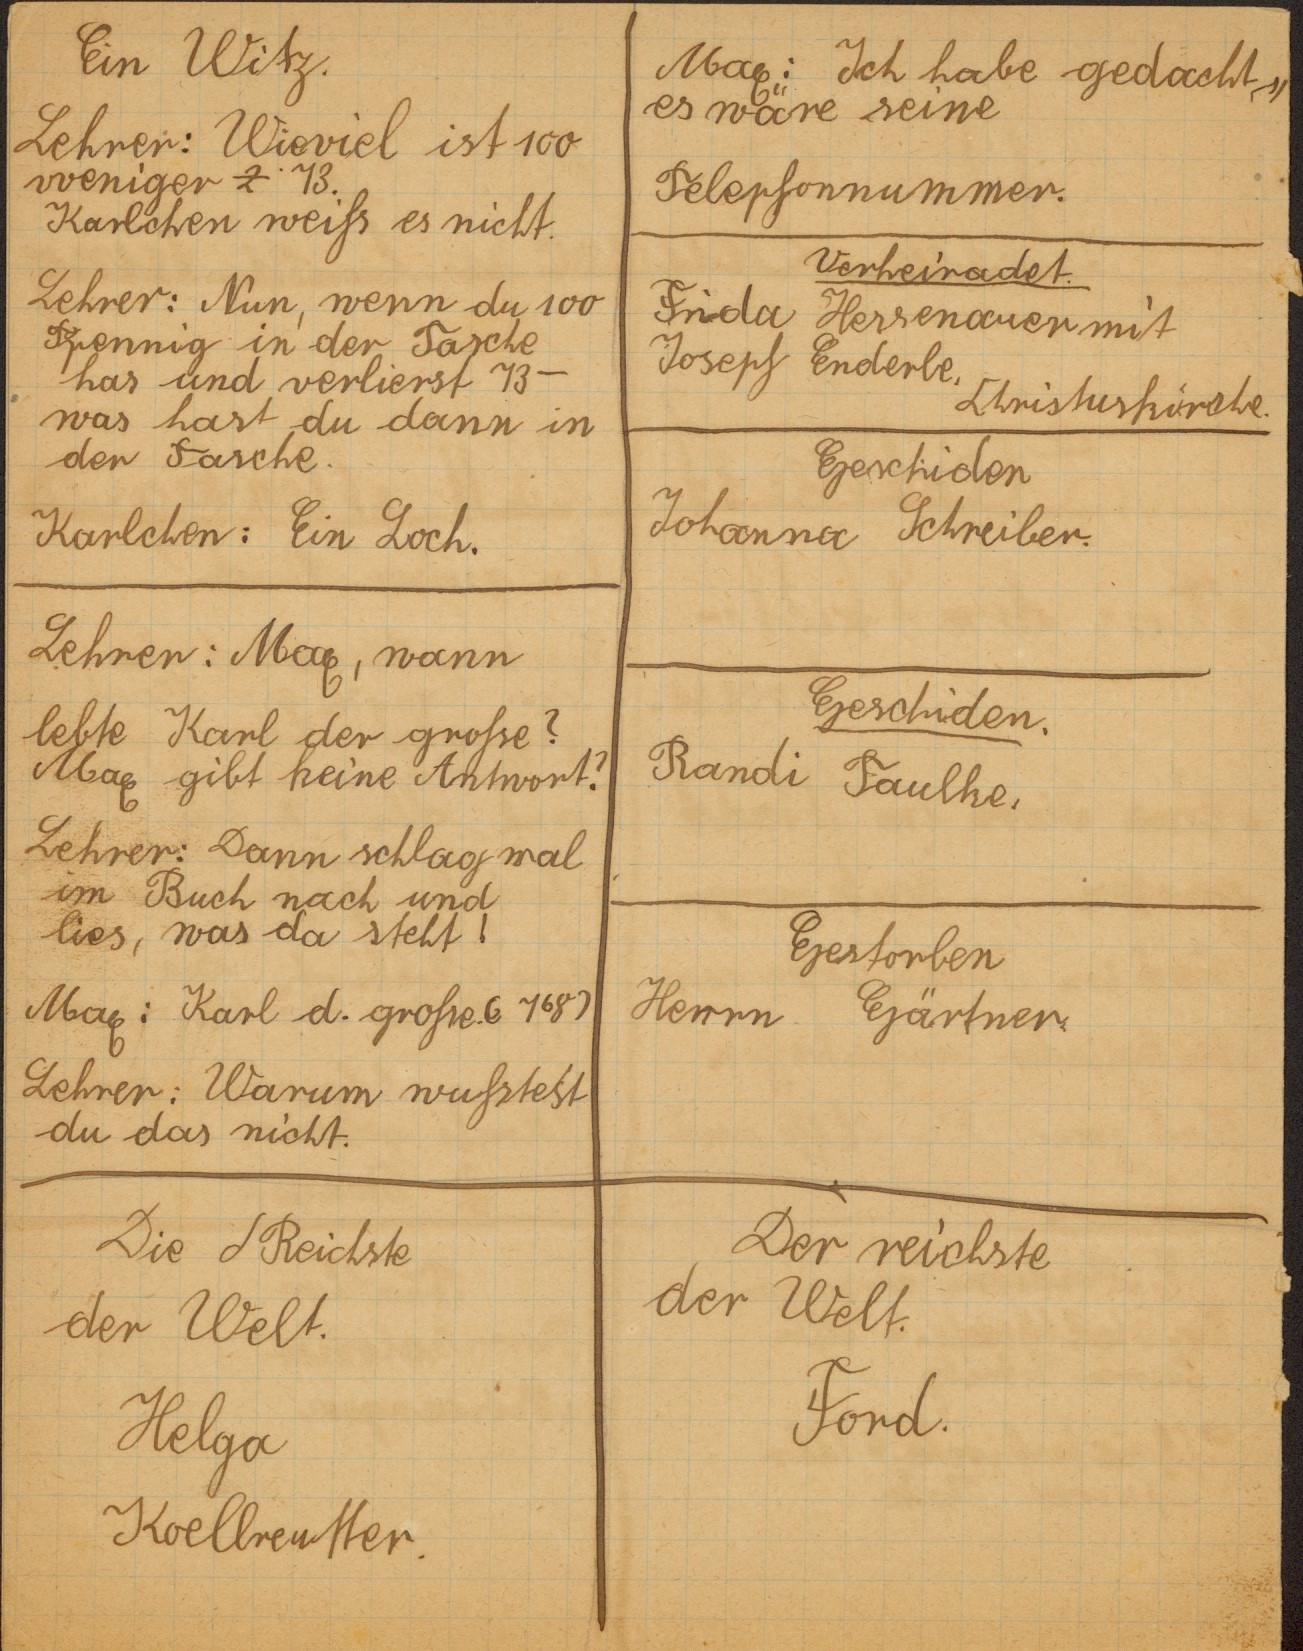 Ein Witz.
Lehrer: Wieviel ist 100
weniger 73.
Karlchen weiss es nicht.
Lehrer: Nun, wenn du 100
Pfennig in der Tasche
has und verlierst 73 –
was hast du dann in
der Tasche.
Karlchen: Ein Loch.
Lehrer: Max, wann
lebte Karl der grosse?
Max gibt keine Antwort?
Lehrer: Dann schlag mal
im Buch nach und
lies, was da steht!
Max: Karl d. grosse. (768)
Lehrer: Warum wusstest
du das nicht.
Die Reichste
der Welt.
Helga
Koellreutter.
Max: Ich habe gedacht,
es wäre seine
Telephonnummer.
Verheiradet.
Frida Hessenauer mit
Joseph Enderle,
Christuskirche.
Geschiden
Johanna Schreiber.
Geschiden.
Randi Faulhe.
Gestorben
Herrn Gärtner.
Der reichste
der Welt.
Ford.